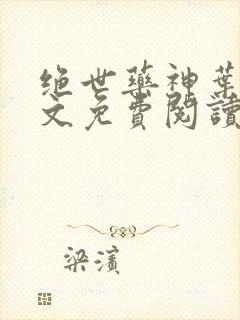 绝世药神葉
文免費閱讀
梁濱